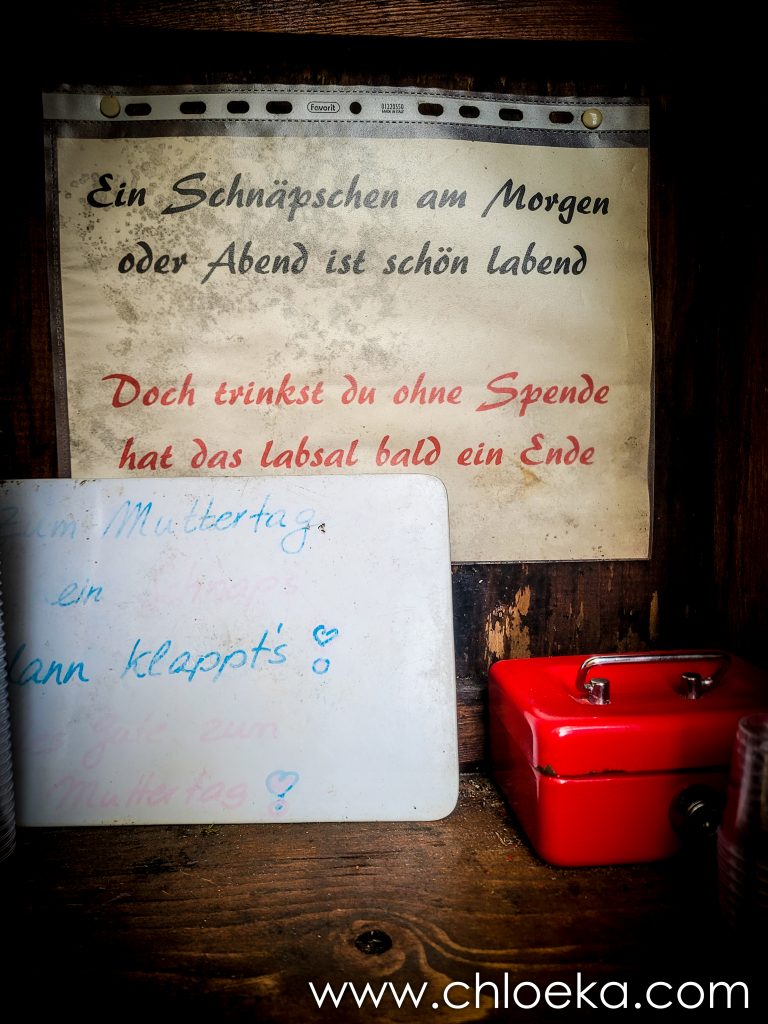 Favorit
01220550
MADE IN ITALY
Ein Schnäpschen am Morgen
oder Abend ist schön labend
Doch trinkst du ohne Spende
hat das labsal bald ein Ende
zum Muttertag
ein Schnaps
dann klappt's !
es Gute zum
Muttertag !
www.chloeka.com